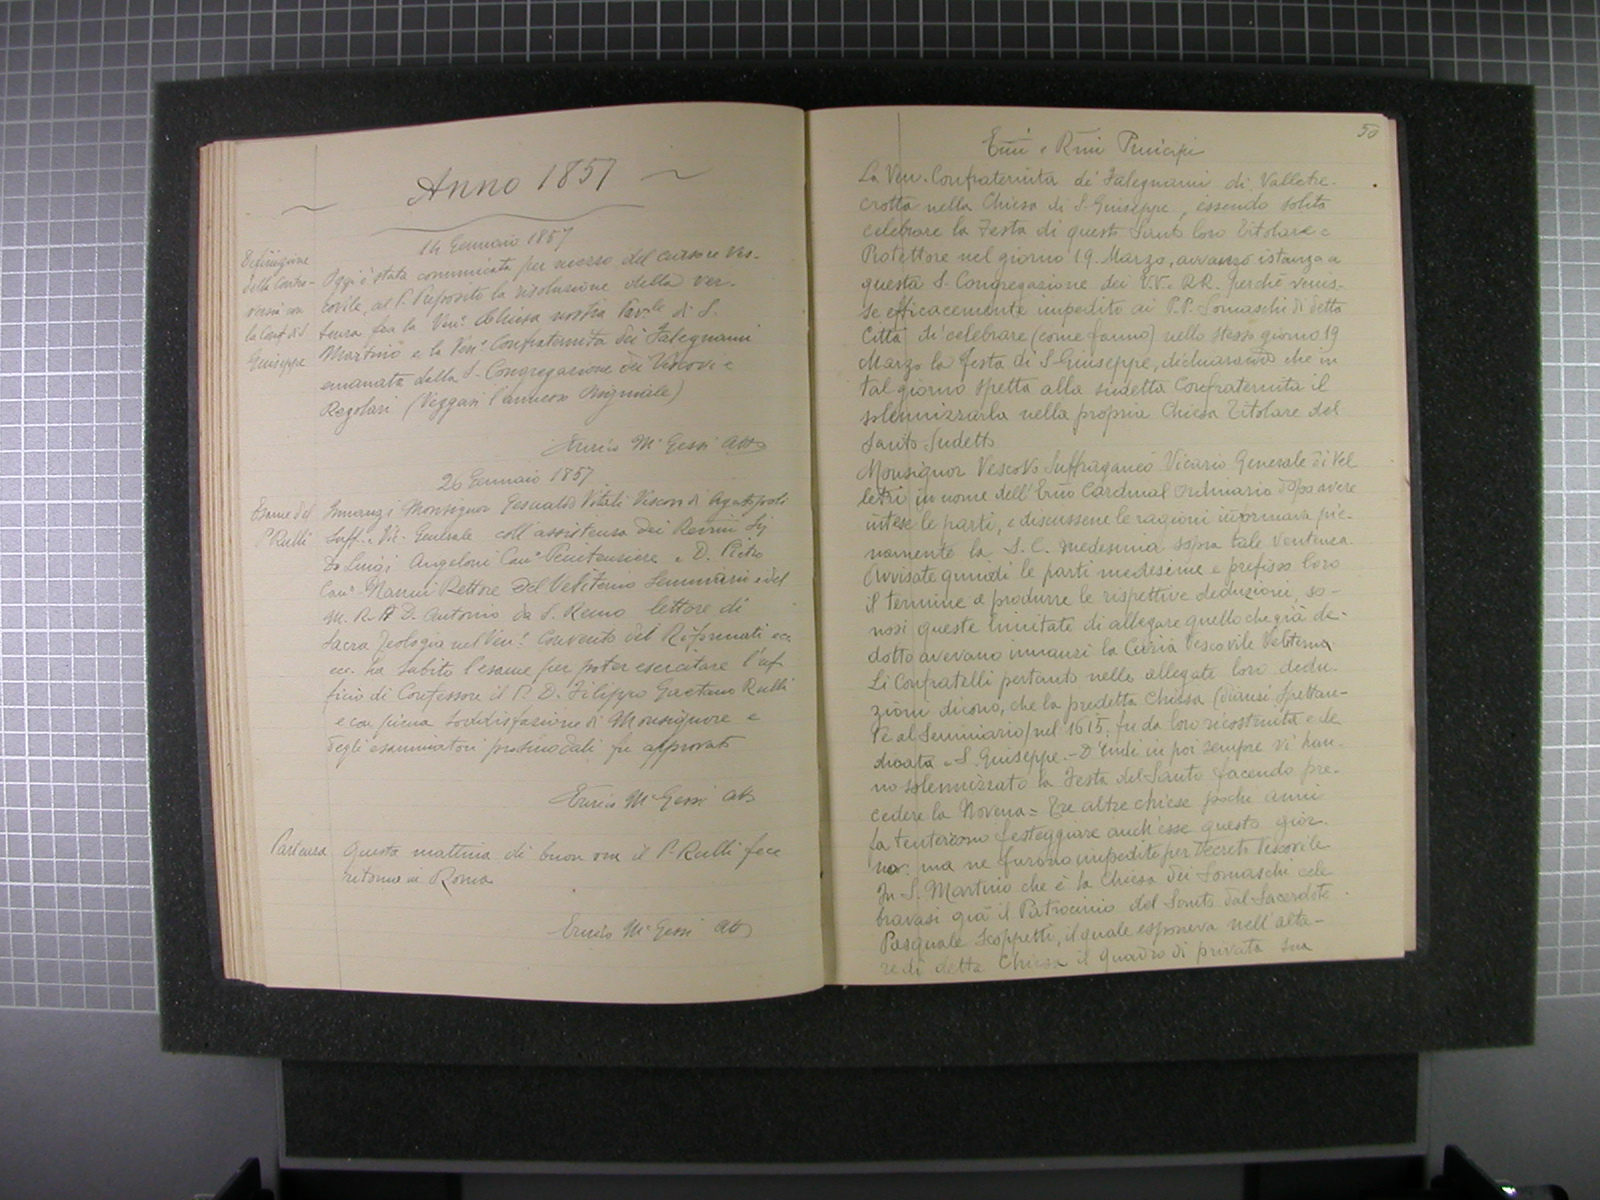 Anno 1857
14 Gennaio 1857
Definizione
della contro-
versia con
la Conf. di S.
Giuseppe
Oggi è stata comunicata per mezzo del cursore Ves-
covile, al P. Preposito la risoluzione della ver-
tenza fra la Ven. Chiesa nostra Parle di S.
Martino e la Ven. Confraternita dei Falegnami
emanata dalla S. Congregazione dei Vescovi e
Regolari (Veggasi l'annesso Originale)
Enrico M. Gessi Atto
26 Gennaio 1857
Esame del
P. Rulli
Innanzi Monsignor Gesualdo Vitali Vescovo di Agatopoli
Suff. e Vic. Generale coll'assistenza dei Revmi Sig
D. Luigi Angeloni Can. Penitenziere e D. Pietro
Can. Nannii Rettore del Veliterno Seminario e del
M. R. P. D. Antonio da S. Remo lettore di
Sacra Teologia nel Ven. Convento dei Riformati ecc.
ecc. ha subito l'esame per poter esercitare l'uf-
ficio di Confessore il P. D. Filippo Gaetano Rulli
e con piena soddisfazione di Monsignore e
degli esaminatori prosinodali fu approvato
Enrico M. Gessi Att
Partenza
Questa mattina di buon ora il P. Rulli fece
ritorno in Roma
Enrico M. Gessi Att
50
Emi e Rmi Principi
La Ven. Confraternita de' Falegnami di Velletri
nella Chiesa di S. Giuseppe, essendo solita
celebrare la Festa di questo Santo loro Titolare e
Protettore nel giorno 19 Marzo, avvanzò istanza a
questa S. Congregazione dei V.V. e R.R. perchè venis-
se efficacemente impedito ai P.P. Somaschi di detta
Città di celebrare (come fanno) nello stesso giorno 19
Marzo la Festa di S. Giuseppe, dichiarando che in
tal giorno spetta alla sudetta Confraternita il
solennizzarla nella propria Chiesa Titolare del
Santo Sudetto
Monsignor Vescovo Suffraganeo Vicario Generale di Vel
letri in nome dell'Emo Cardinal Ordinario dopo avere
intese le parti, e discussene le ragioni informava pie-
namente la S. C. medesima sopra tale vertenza.
Avvisate quindi le parti medesime e prefisso loro
il termine a produrre le rispettive deduzioni, so-
nosi queste limitate di allegare quello che già de-
dotto avevano innanzi la Curia Vescovile Veliterna
Li Confratelli pertanto nelle allegate loro dedu-
zioni dicono, che la predetta Chiesa (dianzi spettan-
te al Seminario) nel 1615. fu da loro ricostruita e de
dicata a S. Giuseppe. - D'indi in poi sempre vi han-
no solennizzato la Festa del Santo facendo pre-
cedere la Novena = Tre altre chiese poche anni
fa tentarono festeggiare anch'esse questo gior-
no: ma ne furono impedite per Decreto Vescovile
In S. Martino che è la Chiesa dei Somaschi cele
bravasi già il Patrocinio del Santo dal Sacerdote
Pasquale Scoppetti, il quale esponeva nell'alta-
re di detta Chiesa il quadro di privata sua